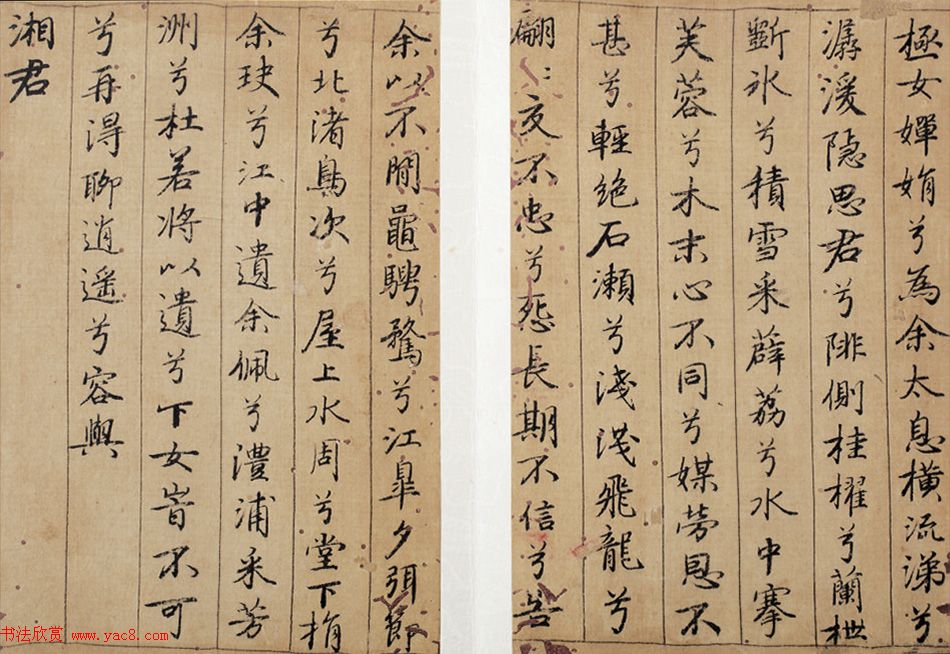 極女嬋娟兮為余太息橫流涕兮
潺湲隐思君兮陫側桂櫂兮蘭枻
斲氷兮積雪采薜荔兮水中搴
芙蓉兮木末心不同兮媒勞恩不
甚兮輕絶石瀬兮淺淺飛龍兮
翩〻交不忠兮怨長期不信兮告
余以不閒鼂騁騖兮江皐夕弭節
兮北渚鳥次兮屋上水周兮堂下捐
余玦兮江中遺余佩兮澧浦采芳
洲兮杜若将以遺兮下女旹不可
兮再淂聊逍遥兮容與
湘君
书法欣赏 www.yac8.com